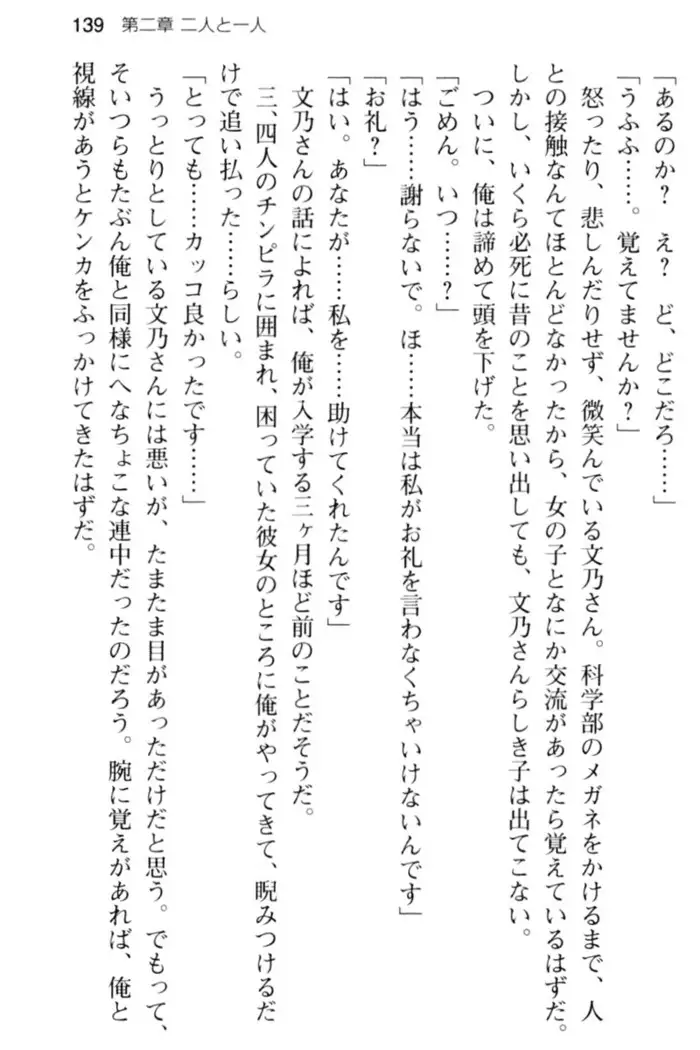 139 第二章 二人と一人
「あるのか？ え？ ど、どこだろ……」
「うふふ……。覚えてませんか？」
怒ったり、悲しんだりせず、微笑んでいる文乃さん。科学部のメガネをかけるまで、人
との接触なんてほとんどなかったから、女の子となにか交流があったら覚えているはずだ。
しかし、いくら必死に昔のことを思い出しても、文乃さんらしき子は出てこない。
ついに、俺は諦めて頭を下げた。
「ごめん。いつ……？」
「はう……謝らないで。ほ……本当は私がお礼を言わなくちゃいけないんです」
「お礼？」
「はい。あなたが……私を……助けてくれたんです」
文乃さんの話によれば、俺が入学する三ヶ月ほど前のことだそうだ。
三、四人のチンピラに囲まれ、困っていた彼女のところに俺がやってきて、睨みつけるだ
けで追い払った……らしい。
「とっても……カッコ良かったです……」
うっとりとしている文乃さんには悪いが、たまたま目があっただけだと思う。でもって、
そいつらもたぶん俺と同様にへなちょこな連中だったのだろう。腕に覚えがあれば、俺と
視線があうとケンカをふっかけてきたはずだ。